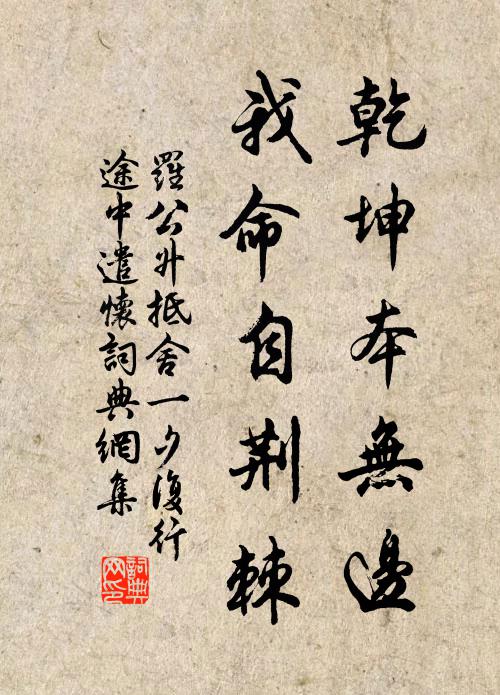 乾坤本無邊
我命自荆棘
羅公升抵舍一夕復行
途中遣懷詞典網集
詞典
网印